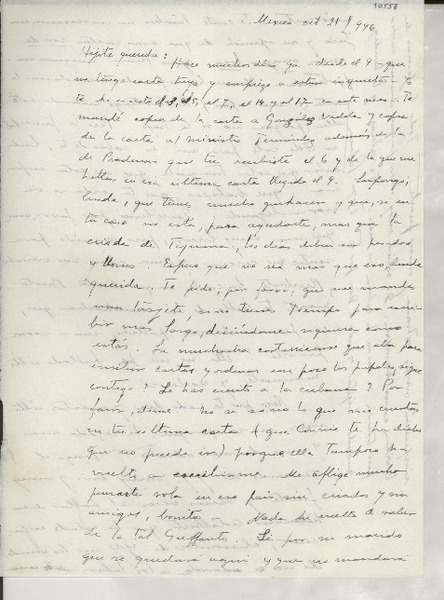 10558
Mexico oct 21 / 946
Hijita querida: Hace muchos días ya desde el 9 – que
no tengo carta tuya y empiezo a estar inquieta. Yo
te he escrito el 3, el 5, el 7, el 14 y el 17 en este mes. Te
mandé copia de la carta a González Videla y copia
de la carta al ministro Fernández además de la
de Pradenas que tú recibiste el 6 y de la que me
hablas en esa última carta llegada el 9. Supongo,
linda, que tienes mucho quehacer y que, si en
tu casa no está, para ayudarte, mas que la
criada de Tijuana, los días deben ser pesados
y llenos. Espero que no sea mas que eso, linda
querida. Te pido, por favor, que me mandes
una tarjeta, si no tienes tiempo para escri-
bir mas largo, diciéndome siquiera como
estás. La muchacha costarricense que iba para
escribir cartas y ordenar un poco los papeles, sigue
contigo? Le has escrito a la cubana? Por
favor, dime. No se si es lo que me cuentas
en tu última carta (que Connie te ha dicho
que no puede ir) porque ella tampoco ha
vuelto a escribirme. Me aflige mucho
pensarte sola en ese país, sin criados y sin
amigos, bonita. Nada he vuelto a saber
de la tal Guffanti. Sé por su marido
que se quedará aquí y que no mandará